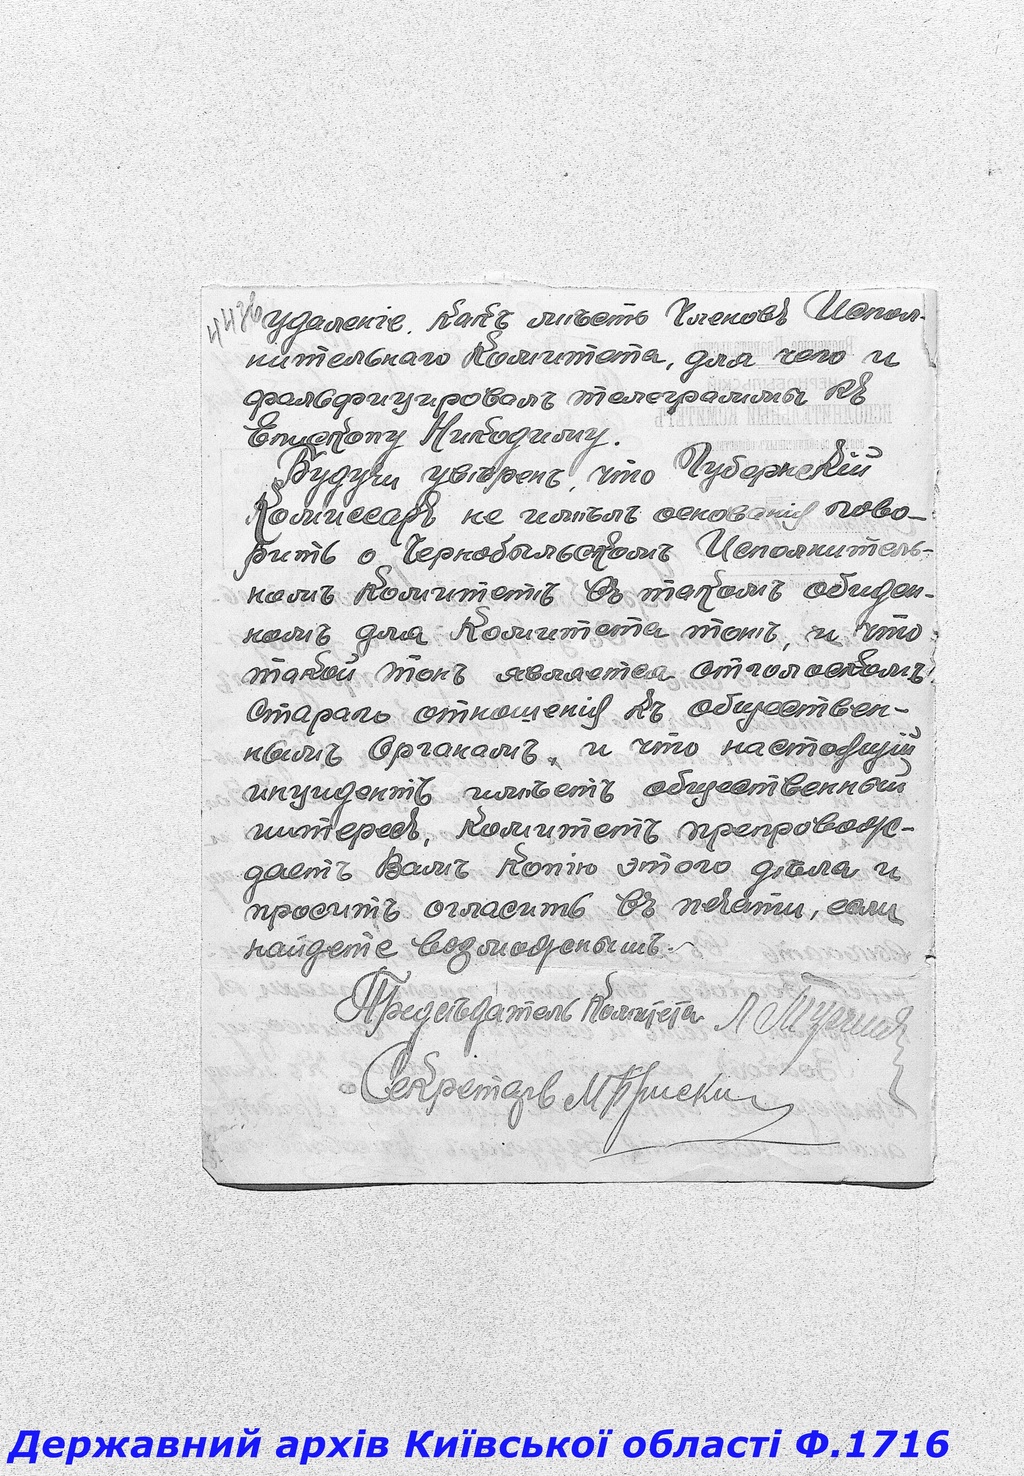 удаленіе. какъ месть Членовъ Испол-
нительнаго Комитета, для чего и
фальфицировалъ телеграммы къ
Епископу Никодиму.
Будучи увѣренъ, что Губернскій
Комиссаръ не имѣлъ основанія гово-
рить о Чернобыльскомъ Исполнитель-
номъ Комитетѣ въ такомъ обиден-
номъ для Комитета тонѣ, и что
такой тонъ является отголоскомъ
стараго отношенія къ обществен-
нымъ Органамъ, и что настоящій
инцидентъ имѣетъ общественный
интересъ, Комитетъ препровож-
даетъ Вамъ копію этого дѣла и
проситъ огласить въ печати, если
найдете возможнымъ.
Предсѣдатель Комитета Л
Секретарь М
Державний архів Київської області Ф.1716